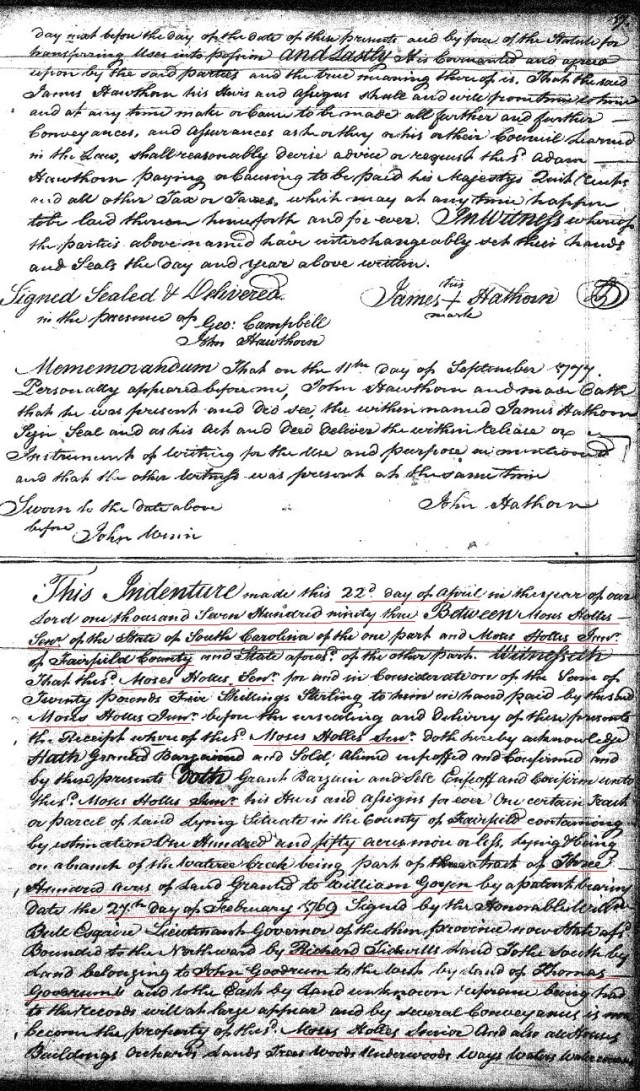 day next before the day of the date of these presents and by force of the Statute for
transferring Uses into possession And Lastly It is Covenanted and agreed
upon by the said parties and the true meaning thereof is, That the said
James Hawthorn his Heirs and assigns shall and will from time to time
and at any time make or Cause to be made all further and further
Conveyances, and assurances as he or they or his or their Council Learned
in the Law, shall reasonably devise advice or request the sd. Adam
Hawthorn paying or Causing to be paid his Majestys Quit Rents
and all other Tax or Taxes, which may at any time happen
to be laid thereon henceforth and for ever. In Witness whereof
the parties above named have interchangeably set their hands
and Seals the day and year above written.
Signed Sealed & Delivered James his + mark Hathorn
in the presence of Geo: Campbell
John Hawthorn
Mememorandum That on the 11th day of September 1777
Personally appeared before me, John Hawthorn and made Oath
that he was present and did see, the within named James Hathorn
Sign Seal and as his act and Deed Deliver the within Release or
Instrument of Writing for the Use and purpose in mentioned
and that the other Witness was present at the same time
Sworn to the date above John Hathorn
before John
This Indenture made this 22d day of April in the year of our
Lord one thousand Seven Hundred ninety three Between Moses Holles
Senr. of the State of South Carolina of the one part and Moses Holles Junr.
of Fairfield County and State aforesd. of the other part. Witnesseth
That the sd. Moses Holles Senr. for and in Consideration of the Sum of
Twenty pounds Five Shillings Sterling to him in hand paid by the said
Moses Holles Junr. before the ensealing and delivery of these presents
the Receipt whereof the sd. Moses Holles Senr. doth hereby acknowledge
Hath Granted Bargained and Sold, Aliend infeoffed and Confirmed and
by these presents Doth Grant Bargain and Sell Enfeoff and Confirm unto
the sd. Moses Holles Junr. his Heirs and assigns for ever One certain Track
or parcel of Land Lying Situate in the County of Fairfield containing
by estimation One Hundred and fifty acres more or less, lying & being
on a branch of the Wateree Creek being part of the tract of Three
Hundred acres of Land Granted to William Goyen by a patent bearing
date the 27th day of February 1769 Signed by the Honorable Willm.
Bull Esquire Lieutenant Governor of the then province now State afsd.
Bounded to the Northward by Richard Tidwills Land To the South by
Land belonging to John Goodrum to the West by land of Thomas
Goodrum and to the East by Land unknown reference being had
to the records will at large appear and by several Conveyances is now
become the property of the sd. Moses Holles Senior And also all Houses
Buildings Orchards Lands Trees Woods Underwoods Ways Waters Watercourses